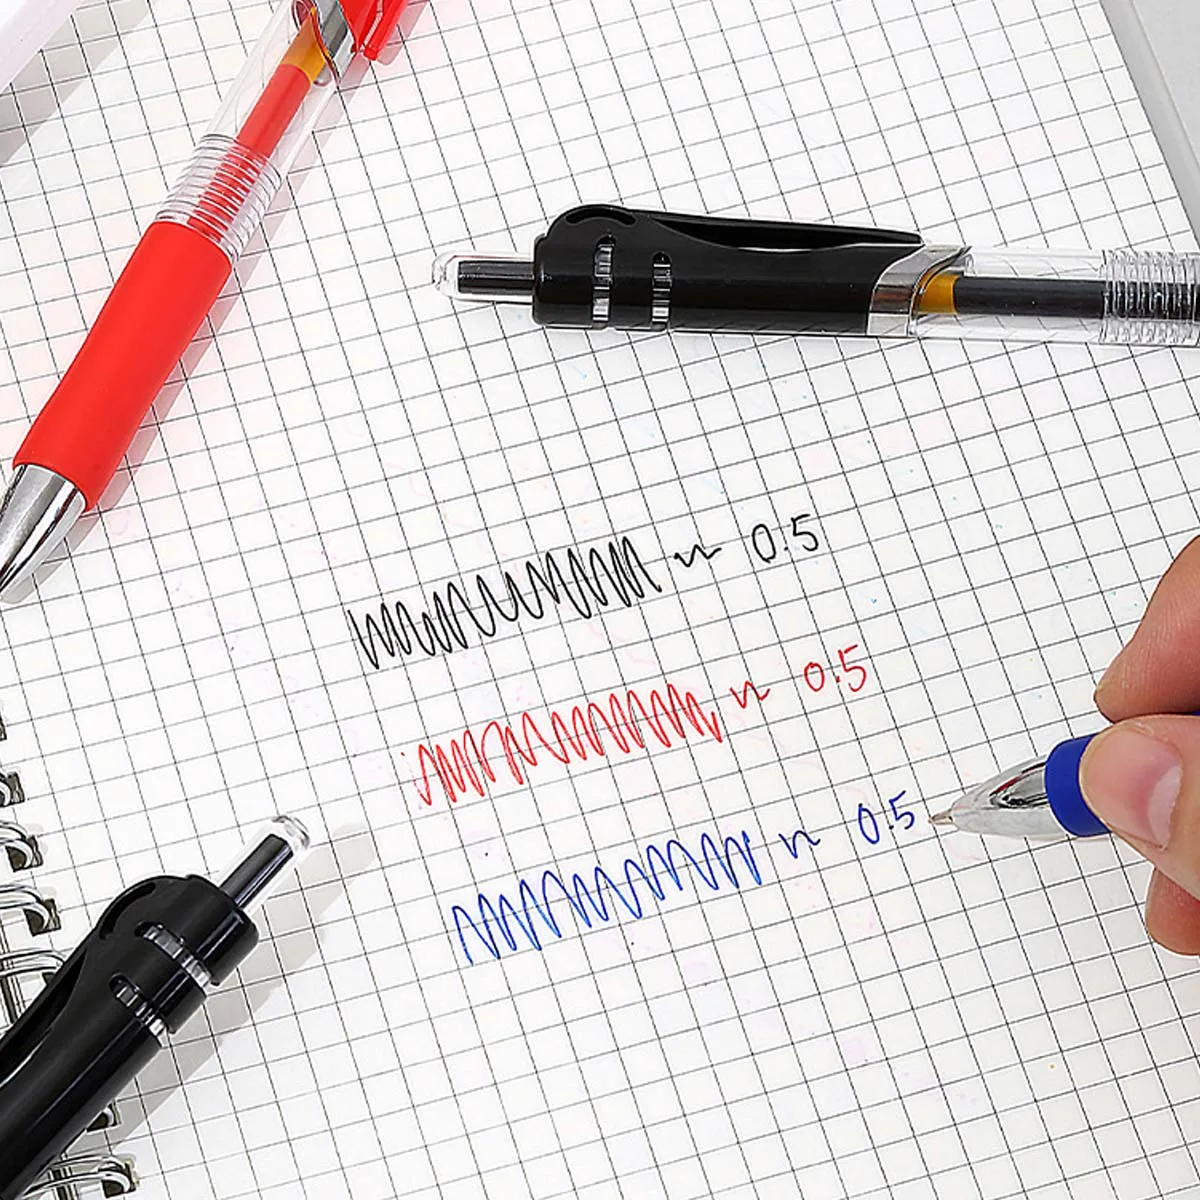 ~ 0.5
~ 0.5
~ 0.5